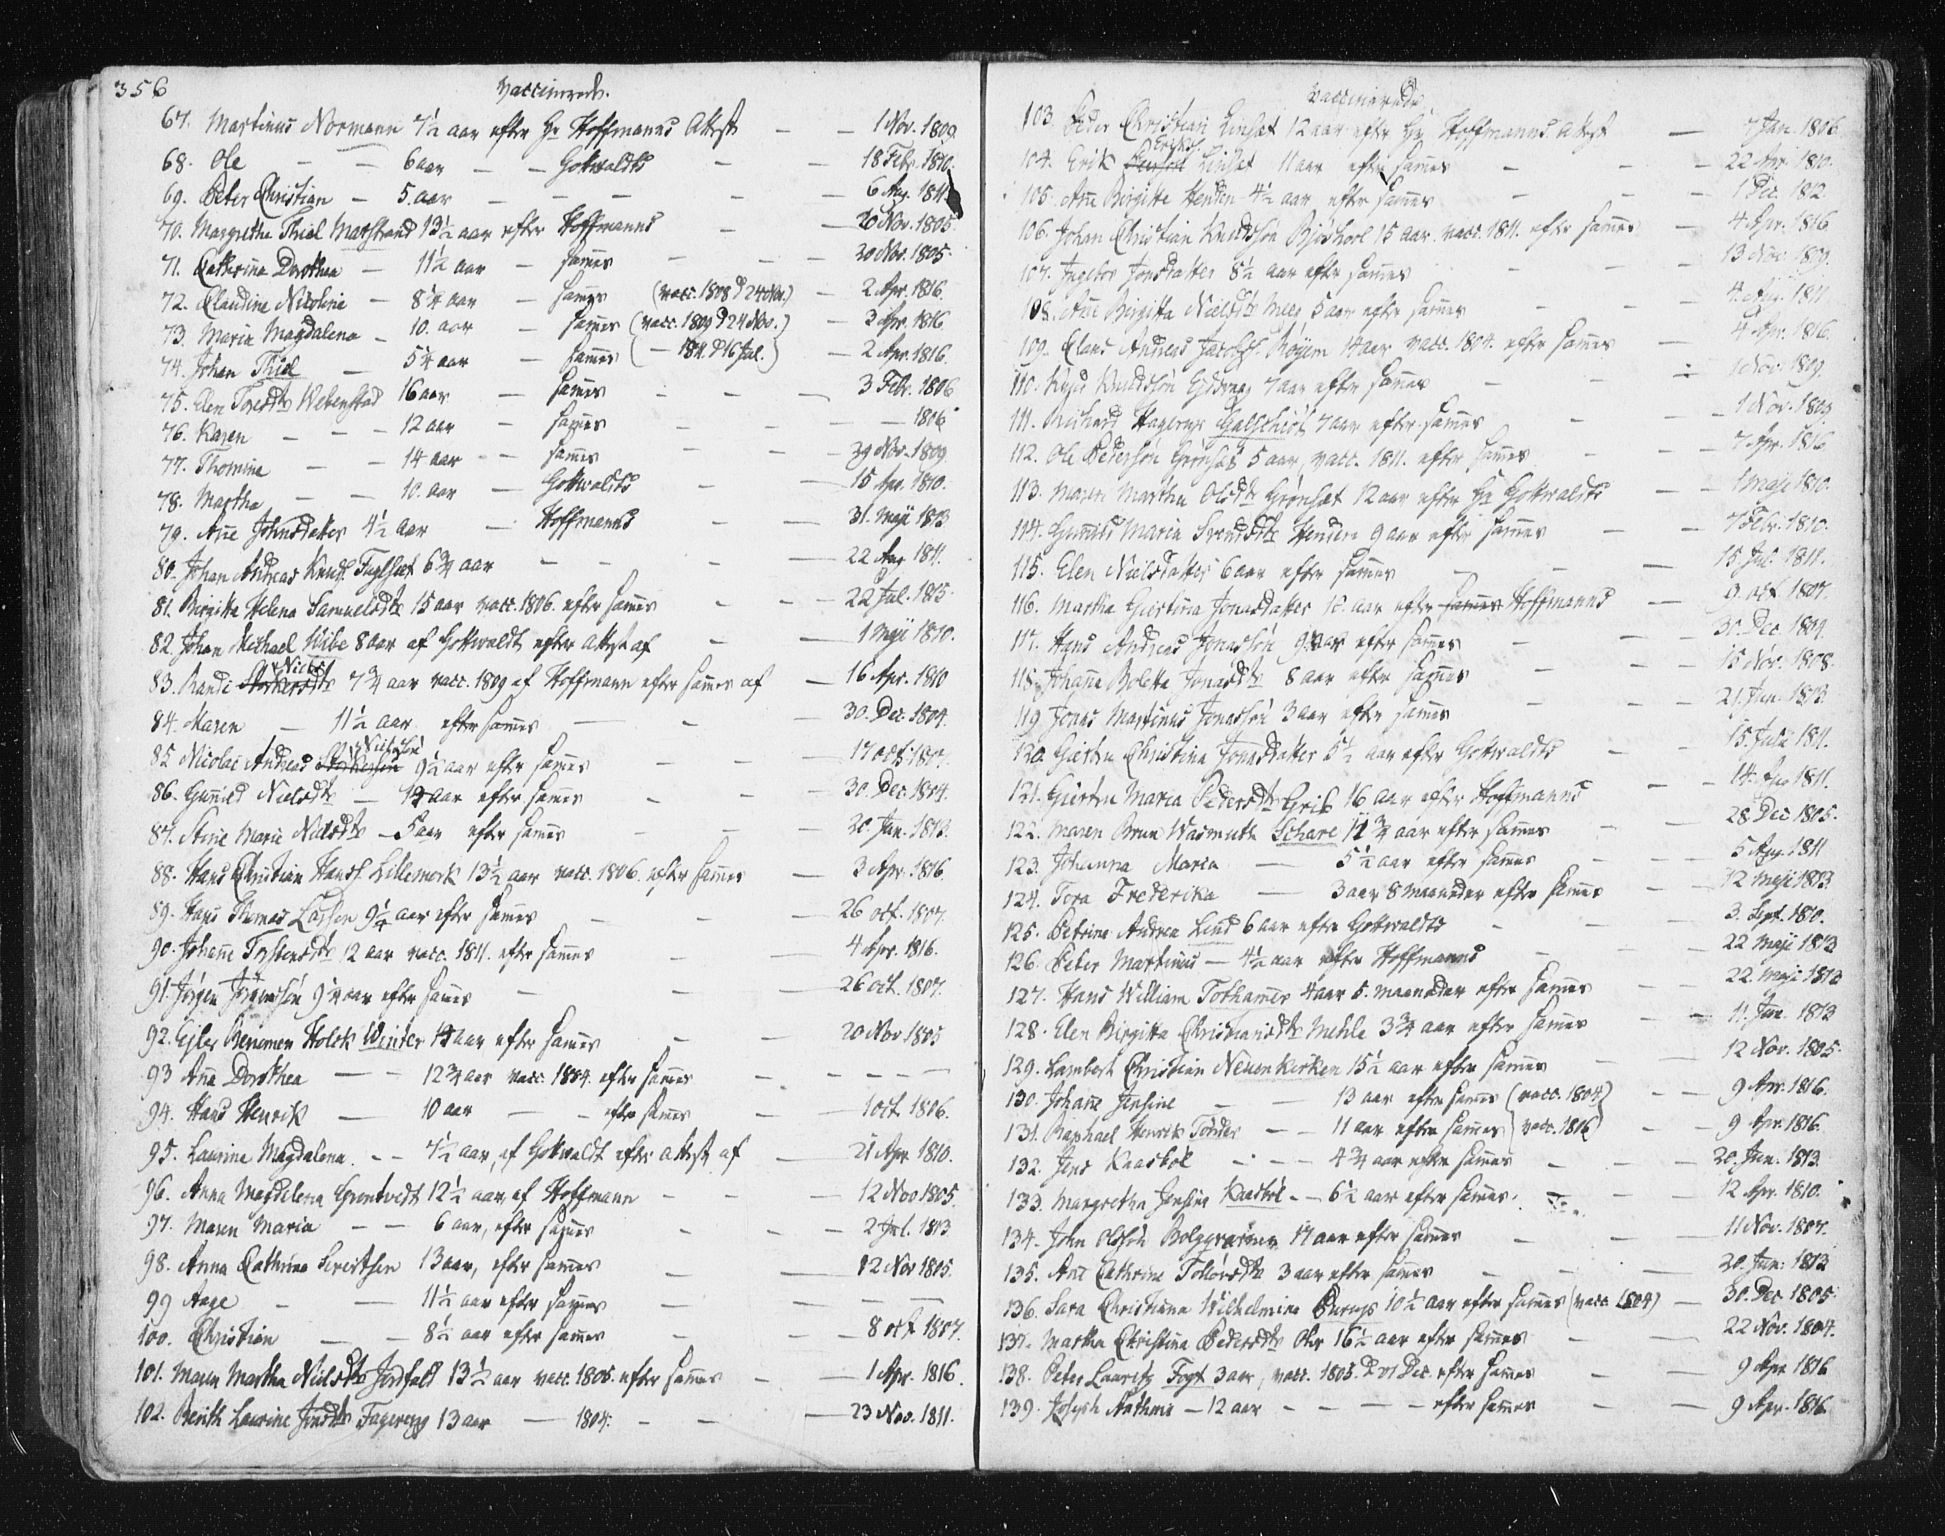 356
Vaccinerede.
67. Martinus Normann 7½ aar efter Hr Hoffmanns Attest — — 1 Nov. 1809.
68. Ole — — 6 aar — — Gottwaldts — — 18 Febr. 1810.
69. Peter Christian — 5. aar — — — — — 6 Aug. 181
70. Margrethe Thiel Matzstrand 13½ aar efter Hoffmanns — — 20 Nov. 1805.
71. Cathrina Dorothea — 11½ aar — sames — — — 20 Nov. 1805.
72. Claudina Nicolina — 8¼ aar — sames (vacc. 1808 d 24 Nov.) — 2 Apr. 1816.
73. Maria Magdalena — 10. aar — sames (vacc. 1809 d 24 Nov.) — 3 Apr. 1816.
74. Johan Thiel — 5¼ aar — sames (— 1811. d 16 Jul.) — 2 Apr. 1816.
75. Elen Toresdtr Webenstad 16 aar — sames — — — 3 Febr. 1806
76. Karen — — — 12 aar — sames — — — — 1806.
77. Thomine — — 14 aar — sames — — — 29 Nov. 1809
78. Martha — — 10. aar — Gottwaldts — — 15 Apr. 1810.
79. Añe Johnsdatter 4½ aar — Hoffmanns — — 31. Maji 1813
80. Johan Andreas Knuds. Fuglset 6¾ aar — — — — 22 Aug. 1811.
81. Birgitte Helena Samuelsdtr 15 aar vacc. 1806. efter sames — — — 22 Jul. 1815.
82. Johan Michael Wibe 8 aar af Gottwaldt efter Attest af — — 1 Maji 1810.
83. Randi Niels dtr 7¾ aar vacc. 1809 af Hoffmann efter sames af — 16 Apr. 1810
84. Maren — 11½ aar efter sames — — — 30. Dec. 1804.
85. Nicolai Andreas Nielssön 9½ aar efter sames — — — 17 oct. 1807.
86. Guñild Nielsdtr — 12 aar efter sames — — — 30. Dec. 1804.
87. Stine Marie Nielsdtr — 5 aar efter sames — — — 20. Jan. 1813.
88. Hans Christian Hanss. Lillemork 13½ aar vacc. 1806. efter sames — 3 Apr. 1816.
89. Hans Thomas Lassen 9¼ aar efter sames — — — 26 oct. 1807.
90. Johañe Torstensdtr 12 aar vacc. 1811. efter sames — — 4 Apr. 1816.
91. Jörgen Jörgenssön 9¼ aar efter sames — — — 26 oct. 1807.
92. Ejler Henemen Holck Winter 14 aar efter sames — — 20 Nov 1805
93 Aña Dorothea — — 12¾ aar vacc. 1804. efter sames — — — —
94. Hans Henrik — 10 aar — — efter sames — — 1 oct. 1806.
95. Laurine Magdalena. — — 7½ aar, af Gottwaldt efter attest af — 21 Apr. 1810.
96. Anna Magdalena Grontvedt 12½ aar, af Hoffmann — — — 12 Nov 1805.
97. Maren Maria — — 6 aar, efter sames — — — 2 Jul. 1813
98. Anna Cathrina Sivertsen 13 aar, efter sames — — 12 Nov 1805.
99 Aage — — 11½ aar efter sames — — — —
100. Christian — 8½ aar efter sames — — — 8 oct. 1807.
101. Maren Martha Nielsdtr Jordfald 13½ aar vacc. 1805. efter sames — — 1 Apr. 1816.
102. Berith Laurine Jonsdtr Fagereng 13 aar — 1804. — — — 23 Nov. 1811.
Vaccinerede.
103. Peder Christian Linset 12 aar efter Hr Hoffmanns Attest — 7 Jan. 1806
104. Erik Eriks. Linset 11 aar efter sames — — — 22 Apr. 1810.
105. Añe Birgitte Henden 4½ aar efter sames — — — 1 Dec. 1812.
106. Johan Christian Knudssön Björhool 15 aar. vacc. 1811. efter sames — 4. Apr. 1816
107. Ingebor Jonsdatter 8½ aar efter sames — — — 13 Nov. 1809.
108. Añe Birgitta Nielsdtr Meeg 5 aar efter sames — — — 4. Aug. 1811
109. Claus Andreas Jacobss. Röyem 14 aar vacc. 1804. efter sames — — 4 Apr. 1816.
110. Knud Knudssön 7 aar efter sames — — — 1 Nov. 1809.
111. Richard Hagerup Galschiöt 7 aar efter sames — — — 1 Nov. 1809
112. Ole Pederssön Grönsæt 5 aar, vacc. 1811. efter sames — — 7 Apr. 1816
113. Maren Martha Olsdtr Grönset 12 aar efter Hr Gottwaldts — — 1 Maji 1810.
114. Guñild Maria Svendsdtr Henden 9 aar efter sames — — 7 Febr. 1810.
115. Elen Nielsdatter 6 aar efter sames — — — 15. Jul. 1811.
116. Martha Giertina Jonasdatter 10. aar efter Hoffmanns — 9. oct. 1807.
117. Hans Andreas Jonassön 9 aar efter sames — — 30. Dec. 1809.
118. Johaña Bolette Jonasdtr 8 aar efter sames — — — 15 Nov. 1808.
119. Jonas Martinus Jonassön 3 aar efter sames — — — 21. Jan. 1813.
120. Giertru Christina Jonasdatter 5½ aar efter Gottwaldts — — 15. Julii 1811.
121. Giertru Maria Pedersdtr Grib 16 aar efter Hoffmanns — — 14. Aug 1811.
122. Maren Brun Wasmuth Schare 11¾ aar efter sames — — 28 Dec 1805.
123. Johanna Maria — 5½ aar efter sames — — — 5 Aug. 1811
124. Tora Frederika — 3 aar 8 maaneder efter sames — — 12 Maji 1813.
125. Petrine Andrea Lind 6 aar efter Gottwaldts — — 3. Sept. 1810.
126. Peter Martinus — 4½ aar efter Hoffmanns — — 22 Maji 1813
127. Hans William Tothamer 4 aar 5. maaneder efter sames — — 22. Maji 1813
128. Elen Birgitta Christiansdtr Mehle 3¾ aar efter sames — — 11. Jan. 1813
129. Lambert Christian Neuenkirken 15½ aar efter sames — — 12 Nov. 1805.
130. Johañe Jensine — — 13 aar efter sames (vacc. 1804) — — 9 Apr. 1816.
131. Raphael Henrik Tönder — — 11 aar efter sames (vacc. 1816) — — 9 Apr. 1816.
132. Jens Kaasböl — — — 4¾ aar efter sames — — — 20. Jan. 1813.
133. Margretha Jensine Kaasböl — — 6½ aar efter sames. — — — 12 Apr. 1810.
134. John Olssön Bolggvaagen 17 aar efter sames — — — 11 Nov. 1807.
135. Añe Cathrine Tollövsdtr 3 aar efter sames — — — 20. Jan. 1813
136. Sara Christiana Wilhelmina Parups 10½ aar efter sames (vacc. 1804) — 30. Dec 1805.
137. Martha Christina Pedersdtr Ohr 16½ aar efter sames — — — 22 Nov. 1804.
138. Peter Lauritz Fogt 3 aar, vacc. 1805. d 21 Dec. efter sames — — 9 Apr 1816
139. Joseph — 12 aar — — — — efter sames — — 9 Apr. 1816